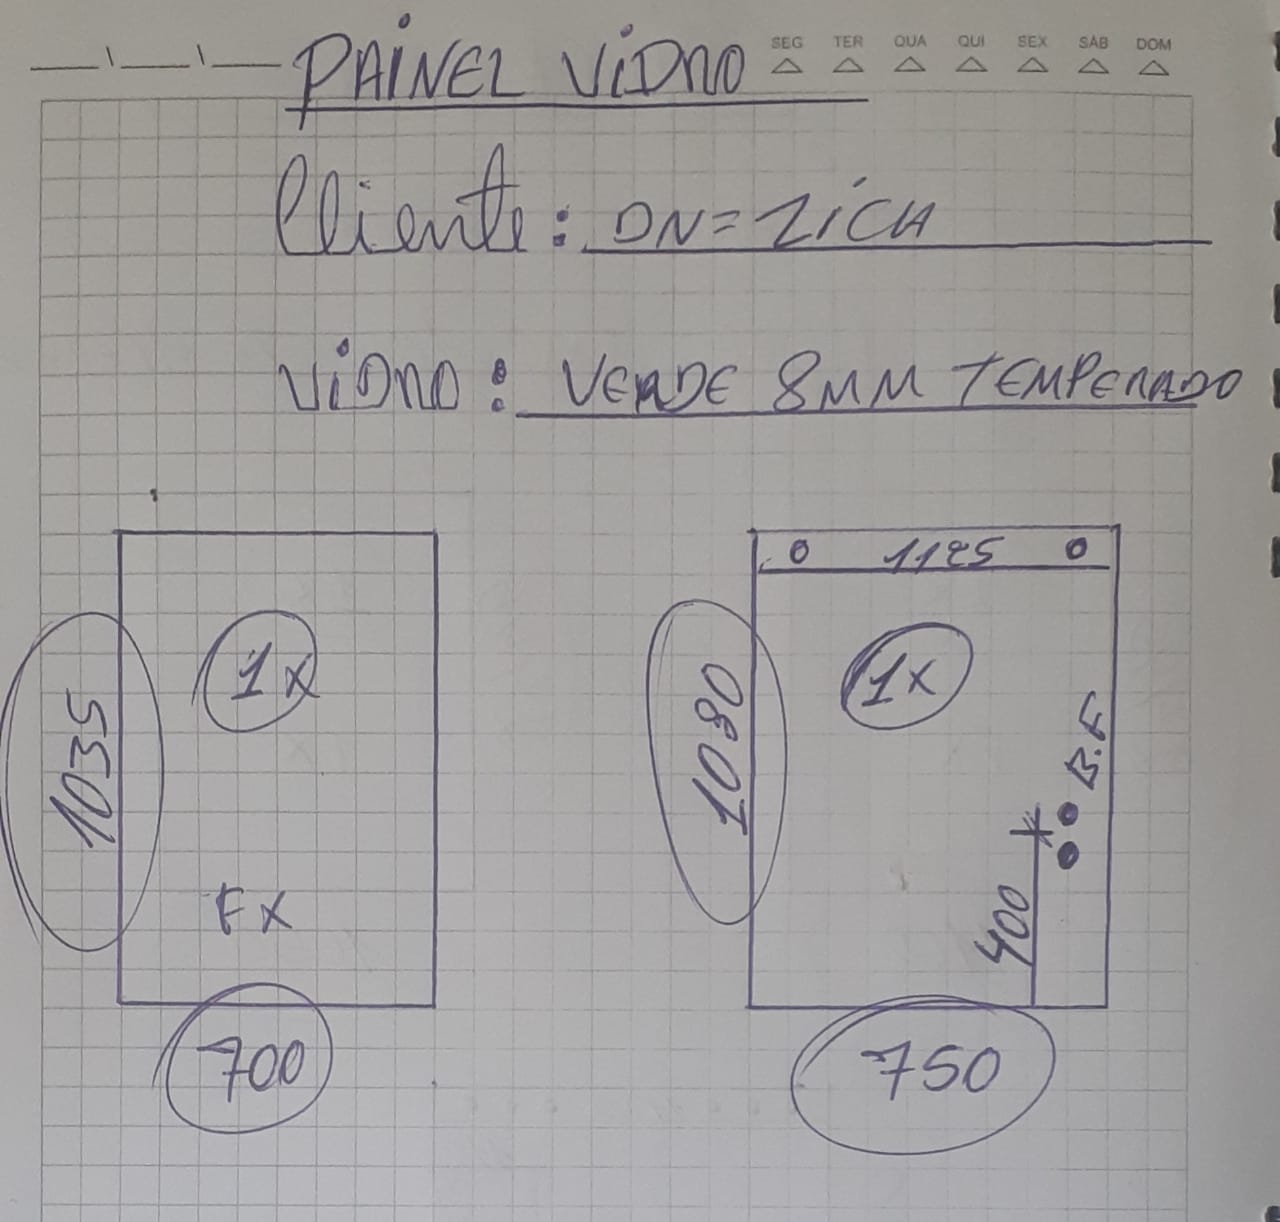 SEG TER QUA QUI SEX SAB DOM
PAINEL VIDRO
Cliente: DR=ZICA
VIDRO: VERDE 8MM TEMPERADO
1125
1X
1X
1035
1080
B.F
FX
400
700
750